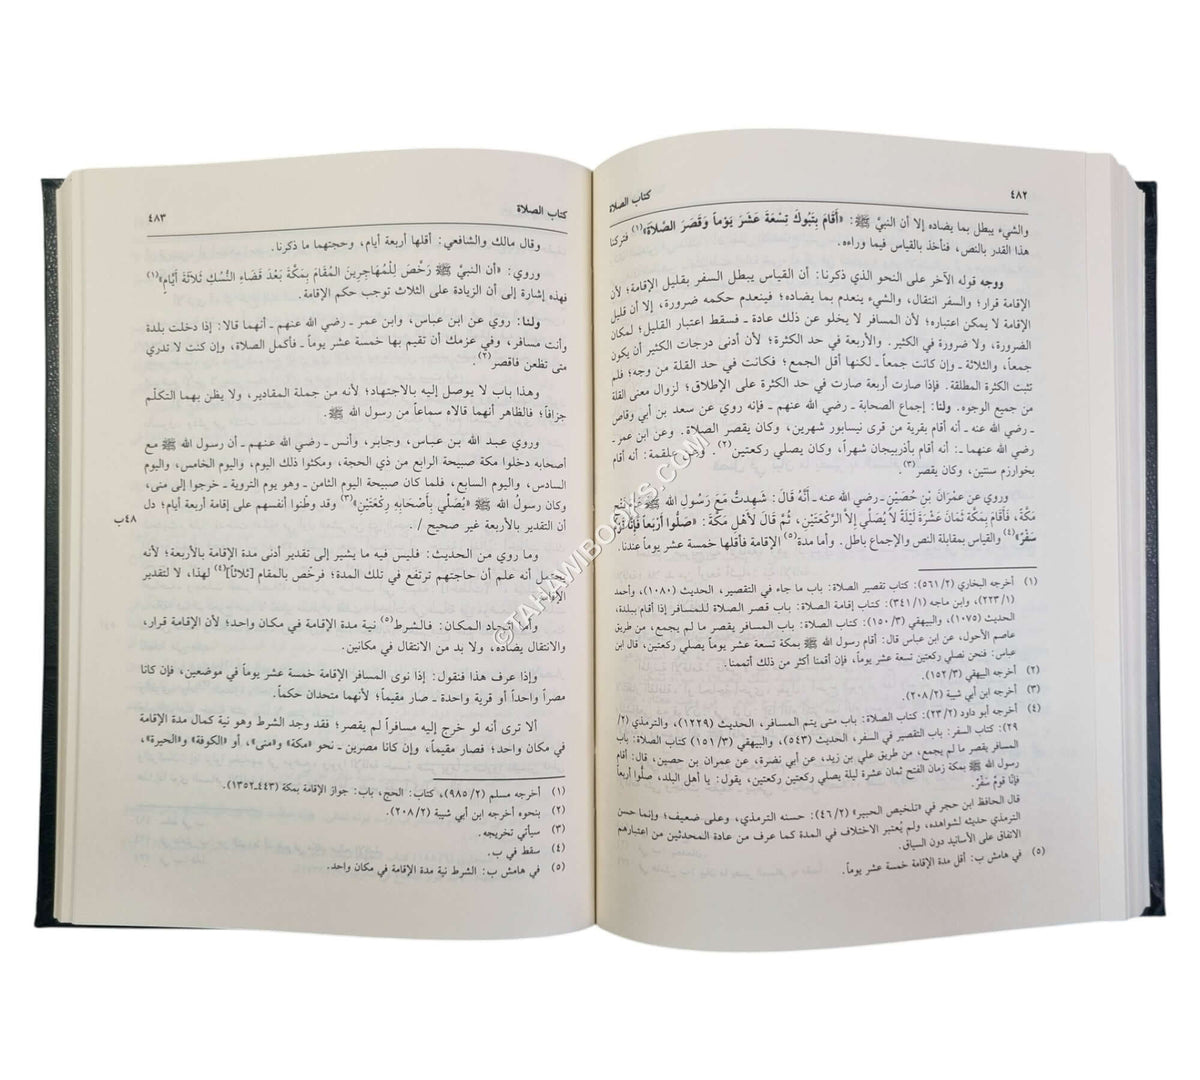 ٤٨٢
كتاب الصلاة
والشيء يبطل بما يضاده إلا أن النبيَّ ﷺ: «أَقَامَ بِتَبُوكَ تِسْعَةَ عَشَرَ يَوْماً وَقَصَرَ الصَّلاَةَ»(١) فتركنا
هذا القدر بالنص، فنأخذ بالقياس فيما وراءه.
ووجه قوله الآخر على النحو الذي ذكرنا: أن القياس يبطل السفر بقليل الإقامة؛ لأن
الإقامة قرار؛ والسفر انتقال، والشيء ينعدم بما يضاده؛ فينعدم حكمه ضرورة، إلا أن قليل
الإقامة لا يمكن اعتباره؛ لأن المسافر لا يخلو عن ذلك عادة ـ فسقط اعتبار القليل؛ لمكان
الضرورة، ولا ضرورة في الكثير. والأربعة في حد الكثرة؛ لأن أدنى درجات الكثير أن يكون
جمعاً، والثلاثة ـ وإن كانت جمعاً ـ لكنها أقل الجمع؛ فكانت في حد القلة من وجه؛ فلم
تثبت الكثرة المطلقة. فإذا صارت أربعة صارت في حد الكثرة على الإطلاق؛ لزوال معنى القلة
من جميع الوجوه. ولنا: إجماع الصحابة ـ رضي الله عنهم ـ فإنه روي عن سعد بن أبي وقاص
ـ رضي الله عنه ـ أنه أقام بقرية من قرى نيسابور شهرين، وكان يقصر الصلاة. وعن ابن عمر ـ
رضي الله عنهما ـ: أنه أقام بأذربيجان شهراً، وكان يصلي ركعتين(٢). وعن علقمة: أنه أقام
بخوارزم سنتين، وكان يقصر(٣).
وروي عن عمرَانَ بْنِ حُصَيْنٍ ـ رضي الله عنه ـ أَنَّهُ قَالَ: شَهِدتُ مَعَ رَسُولِ الله ﷺ
مَكَّةَ، فَأَقَامَ بِمَكَّةَ ثَمَانَ عَشْرَةَ لَيْلَةً لاَ يُصَلِّي إِلاَّ الرَّكْعَتَيْنِ، ثُمَّ قَالَ لأَهْلِ مَكَّةَ: «صَلُّوا أَرْبَعاً فَإِنَّا قَوْمٌ
سَفْرٌ»(٤) والقياس بمقابلة النص والإجماع باطل. وأما مدة(٥) الإقامة فأقلها خمسة عشر يوماً عندنا.
(١) أخرجه البخاري (٥٦١/٢): كتاب تقصير الصلاة: باب ما جاء في التقصير، الحديث (١٠٨٠)، وأحمد
(٢٢٣/١)، وابن ماجه (٣٤١/١): كتاب إقامة الصلاة: باب قصر الصلاة للمسافر إذا أقام ببلدة،
الحديث (١٠٧٥)، والبيهقي (١٥٠/٣): كتاب الصلاة: باب المسافر يقصر ما لم يجمع، من طريق
عاصم الأحول، عن ابن عباس قال: أقام رسول الله ﷺ بمكة تسعة عشر يوماً يصلي ركعتين، قال ابن
عباس: فنحن نصلي ركعتين تسعة عشر يوماً، فإن أقمنا أكثر من ذلك أتممنا.
(٢) أخرجه البيهقي (١٥٢/٣).
(٣) أخرجه ابن أبي شيبة (٢٠٨/٢).
(٤) أخرجه أبو داود (٢٣/٢): كتاب الصلاة: باب متى يتم المسافر، الحديث (١٢٢٩)، والترمذي (٢/
٢٩: كتاب السفر: باب التقصير في السفر، الحديث (٥٤٣)، والبيهقي (١٥١/٣) كتاب الصلاة: باب
المسافر يقصر ما لم يجمع، من طريق علي بن زيد، عن أبي نضرة، عن عمران بن حصين، قال: أقام
رسول الله ﷺ بمكة زمان الفتح ثمان عشرة ليلة يصلي ركعتين ركعتين، يقول: يا أهل البلد، صلُّوا أربعاً
فإنَّا قومٌ سَفْرٌ.
قال الحافظ ابن حجر في «تلخيص الحبير» (٤٦/٢): حسنه الترمذي، وعلى ضعيف؛ وإنما حسن
الترمذي حديثه لشواهده، ولم يُعتبر الاختلاف في المدة كما عرف من عادة المحدثين من اعتبارهم
الاتفاق على الأسانيد دون السياق.
(٥) في هامش ب: أقل مدة الإقامة خمسة عشر يوماً.
كتاب الصلاة
٤٨٣
وقال مالك والشافعي: أقلها أربعة أيام، وحجتهما ما ذكرنا.
وروي: «أن النبيَّ ﷺ رَخَّصَ لِلْمُهَاجِرِينَ المُقَامَ بِمَكَّةَ بَعْدَ قَضَاءِ النُّسُكِ ثَلاَثَةَ أَيَّامٍ»(١)
فهذه إشارة إلى أن الزيادة على الثلاث توجب حكم الإقامة.
ولنا: روي عن ابن عباس، وابن عمر ـ رضي الله عنهم ـ أنهما قالا: إذا دخلت بلدة
وأنت مسافر، وفي عزمك أن تقيم بها خمسة عشر يوماً ـ فأكمل الصلاة، وإن كنت لا تدري
متى تظعن فاقصر(٢).
وهذا باب لا يوصل إليه بالاجتهاد؛ لأنه من جملة المقادير، ولا يظن بهما التكلّم
جزافاً؛ فالظاهر أنهما قالاه سماعاً من رسول الله ﷺ.
وروي عبد الله بن عباس، وجابر، وأنس ـ رضي الله عنهم ـ أن رسول الله ﷺ مع
أصحابه دخلوا مكة صبيحة الرابع من ذي الحجة، ومكثوا ذلك اليوم، واليوم الخامس، واليوم
السادس، واليوم السابع، فلما كان صبيحة اليوم الثامن ـ وهو يوم التروية ـ خرجوا إلى منى،
وكان رسولُ الله ﷺ «يُصَلِّي بِأَصْحَابِهِ رَكْعَتَيْنِ»(٣) وقد وطنوا أنفسهم على إقامة أربعة أيام؛ دل
٤٨ب
أن التقدير بالأربعة غير صحيح /.
وما روي من الحديث: فليس فيه ما يشير إلى تقدير أدنى مدة الإقامة بالأربعة؛ لأنه
يحتمل أنه علم أن حاجتهم ترتفع في تلك المدة؛ فرخّص بالمقام [ثلاثاً](٤) لهذا، لا لتقدير
الإقامة.
وأما اتحاد المكان: فالشرط(٥) نية مدة الإقامة في مكان واحد؛ لأن الإقامة قرار،
والانتقال يضاده، ولا بد من الانتقال في مكانين.
وإذا عرف هذا فنقول: إذا نوى المسافر الإقامة خمسة عشر يوماً في موضعين، فإن كانا
مصراً واحداً أو قرية واحدة ـ صار مقيماً؛ لأنهما متحدان حكماً.
ألا ترى أنه لو خرج إليه مسافراً لم يقصر؛ فقد وجد الشرط وهو نية كمال مدة الإقامة
في مكان واحد؛ فصار مقيماً، وإن كانا مصرين ـ نحو «مكة» و«منى»، أو «الكوفة» و«الحيرة»،
(١) أخرجه مسلم (٩٨٥/٢)، كتاب: الحج، باب: جواز الإقامة بمكة (٤٤٣ـ١٣٥٢).
(٢) بنحوه أخرجه ابن أبي شيبة (٢٠٨/٢).
(٣) سيأتي تخريجه.
(٤) سقط في ب.
(٥) في هامش ب: الشرط نية مدة الإقامة في مكان واحد.
©TAHAWIBOOKS.COM